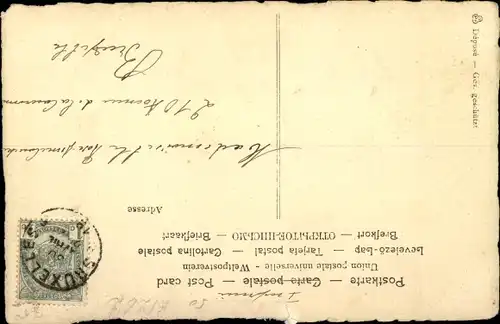 Imprimé
Postkarte — Carte postale — Post card
Union postale universelle - Weltpostverein
Levelező-Lap — Tarjeta postal — Cartolina postale
Brefkort — ОТКРЫТОЕ ПИСЬМО — Briefkaart
Adresse
Mademoiselle
210 Avenue de la Couronne
Bruxelles
BRUXELLES
Déposé — Ges. geschützt